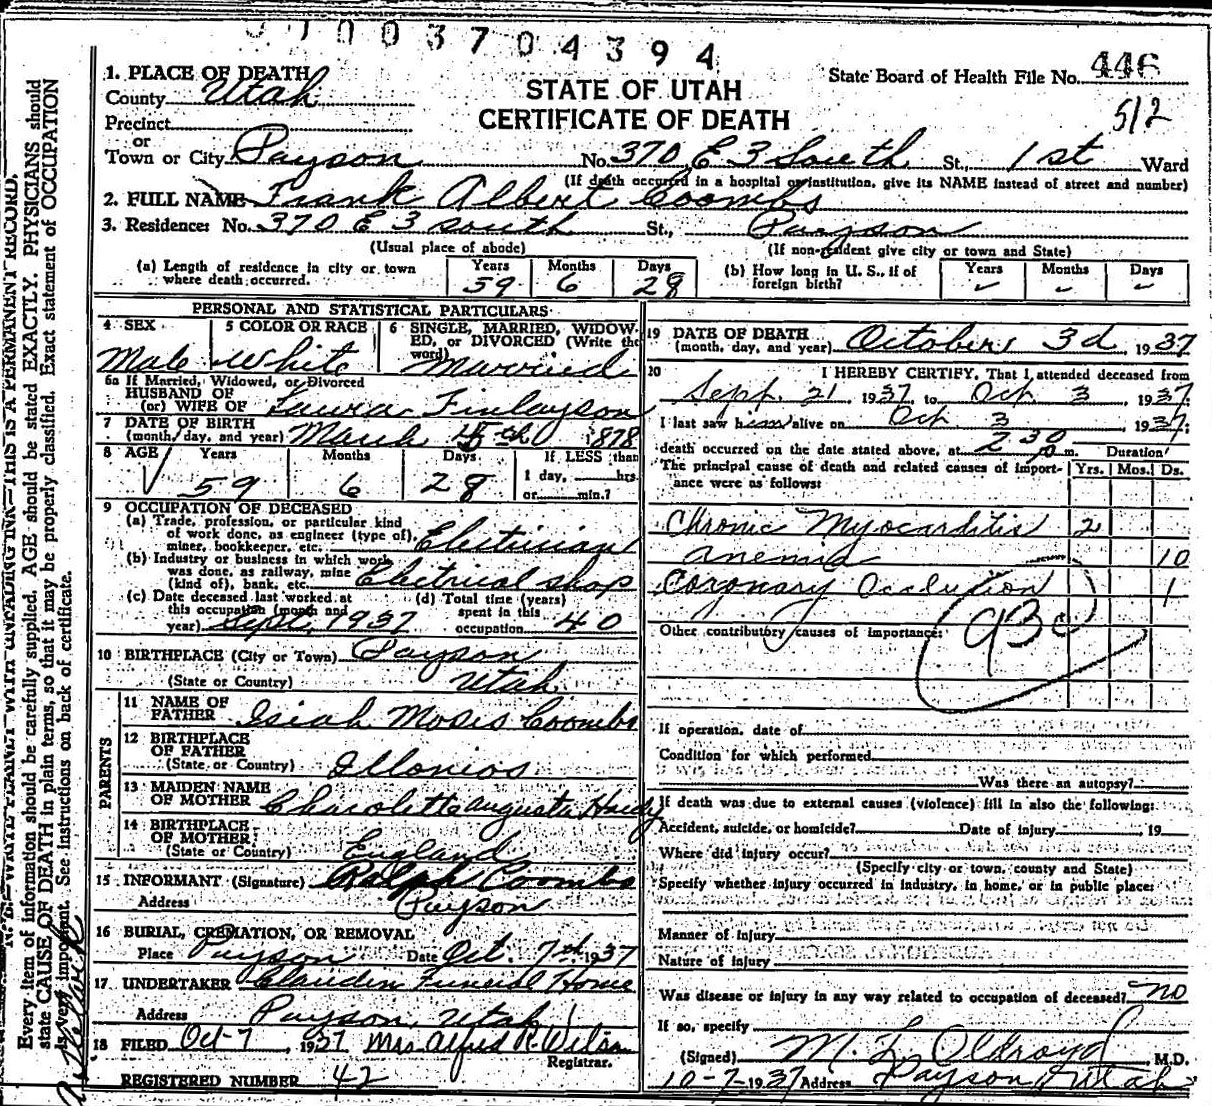 1003704394
STATE OF UTAH
CERTIFICATE OF DEATH
State Board of Health File No. 446
512
1. PLACE OF DEATH
County Utah
Precinct
or
Town or City Payson No. 370 E 3 South St., 1st Ward
(If death occurred in a hospital or institution, give its NAME instead of street and number)
2. FULL NAME Frank Albert Coombs
3. Residence: No. 370 E 3 South St., Payson
(Usual place of abode) (If non-resident give city or town and State)
(a) Length of residence in city or town where death occurred. Years 59 Months 6 Days 28
(b) How long in U. S., if of foreign birth? Years Months Days
PERSONAL AND STATISTICAL PARTICULARS
4 SEX Male
5 COLOR OR RACE White
6 SINGLE, MARRIED, WIDOWED, or DIVORCED (Write the word) Married
6a If Married, Widowed, or Divorced
HUSBAND OF
(or) WIFE OF Laura Finlayson
7 DATE OF BIRTH
(month, day, and year) March 5th 1878
8 AGE Years 59 Months 6 Days 28 If LESS than 1 day, hrs. or min.?
9 OCCUPATION OF DECEASED
(a) Trade, profession, or particular kind of work done, as engineer (type of), miner, bookkeeper, etc. Electrician
(b) Industry or business in which work was done, as railway, mine (kind of), bank, etc. Electrical shop
(c) Date deceased last worked at this occupation (month and year) Sept, 1937
(d) Total time (years) spent in this occupation 40
10 BIRTHPLACE (City or Town) Payson
(State or Country) Utah
PARENTS
11 NAME OF FATHER Isiah Moses Coombs
12 BIRTHPLACE OF FATHER
(State or Country) Illonios
13 MAIDEN NAME OF MOTHER Charolette Augusta Hardy
14 BIRTHPLACE OF MOTHER
(State or Country) England
15 INFORMANT (Signature) Ralph Coombs
Address Payson
16 BURIAL, CREMATION, OR REMOVAL
Place Payson Date Oct. 7th 1937
17 UNDERTAKER Claudin Funeral Home
Address Payson, Utah
18 FILED Oct-7, 1937 Mrs Alfred R. Wilson
Registrar.
REGISTERED NUMBER 42
19 DATE OF DEATH
(month, day, and year) October 3d, 1937
20 I HEREBY CERTIFY, That I attended deceased from
Sept. 21 1937, to Oct. 3, 1937;
I last saw him alive on Oct 3, 1937;
death occurred on the date stated above, at 2 30 p m. Duration
The principal cause of death and related causes of importance were as follows: Yrs. Mos. Ds.
Chronic Myocarditis 2
anemia 10
Coronary Occlution 1
Other contributory causes of importance:
If operation, date of
Condition for which performed
Was there an autopsy?
If death was due to external causes (violence) fill in also the following:
Accident, suicide, or homicide? Date of injury, 19
Where did injury occur?
(Specify city or town, county and State)
Specify whether injury occurred in industry, in home, or in public place:
Manner of injury
Nature of injury
Was disease or injury in any way related to occupation of deceased? No
If so, specify
(Signed) M. L. Oldroyd M.D.
10-7-1937 Address Payson Utah
N. B.—WRITE PLAINLY WITH UNFADING INK—THIS IS A PERMANENT RECORD.
Every item of information should be carefully supplied. AGE should be stated EXACTLY. PHYSICIANS should
state CAUSE OF DEATH in plain terms, so that it may be properly classified. Exact statement of OCCUPATION
is very important. See instructions on back of certificate.